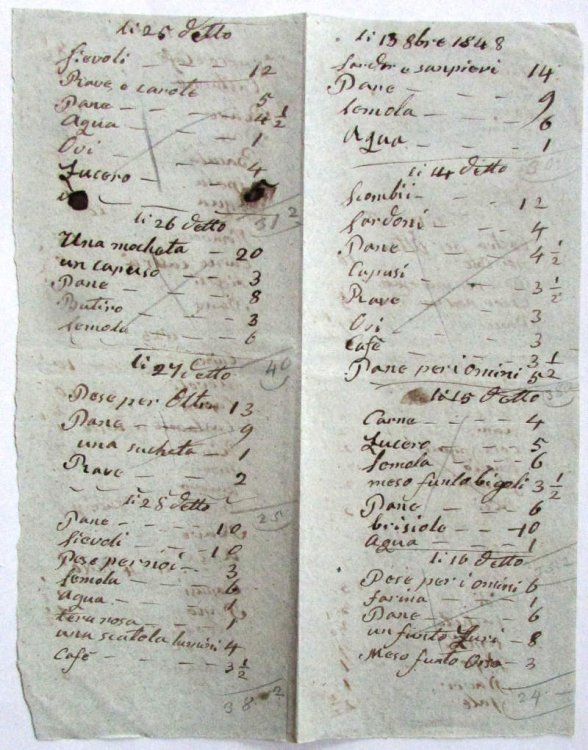 li 25 detto
Sievoli - - 12
Rave e carote 5
Pane - - 4 1/2
Agua - - 1
Ovi - - -
Zucero - - 4
5
31 2
li 26 detto
Una mocheta - 20
un capuso - - 3
Pane - - - 8
Butiro - - - 3
Semola - - - 6
40
li 27 detto
Pese per Oltri 13
Pane - - - 9
una sacheta - 1
Rave - - - 2
25
li 28 detto
Pane - - - 10
Sievoli - - - 10
Pese per noi - 3
Semola - - - 6
agua - - - 1
tera rosa - - 1
una scatola lumini 4
Cafè - - - 3 1/2
38 2
li 13 8bre 1848
Sardele e sanpieri 14
Pane - - - 9
Semola - - - 6
Agua - - - 1
30
li 14 detto
Scombri - - - 12
Sardoni - - - 4
Pane - - - 4 1/2
Capusi - - -
Rave - - - 3 1/2
Ovi - - - 3
Cafè - - - 3
3 1/2
Pane per i omini 5
li 15 detto
Carne - - - 4
Zucero - - 5
Semola - - 6
meso funto bigoli 3 1/2
Pane - - - 6
brisiole - - - 10
Agua - - - 1
li 16 detto
Pese per i omini 6
farina - - - 1
Pane - - - 6
un funto - 8
Meso funto Orso - 3
24 -